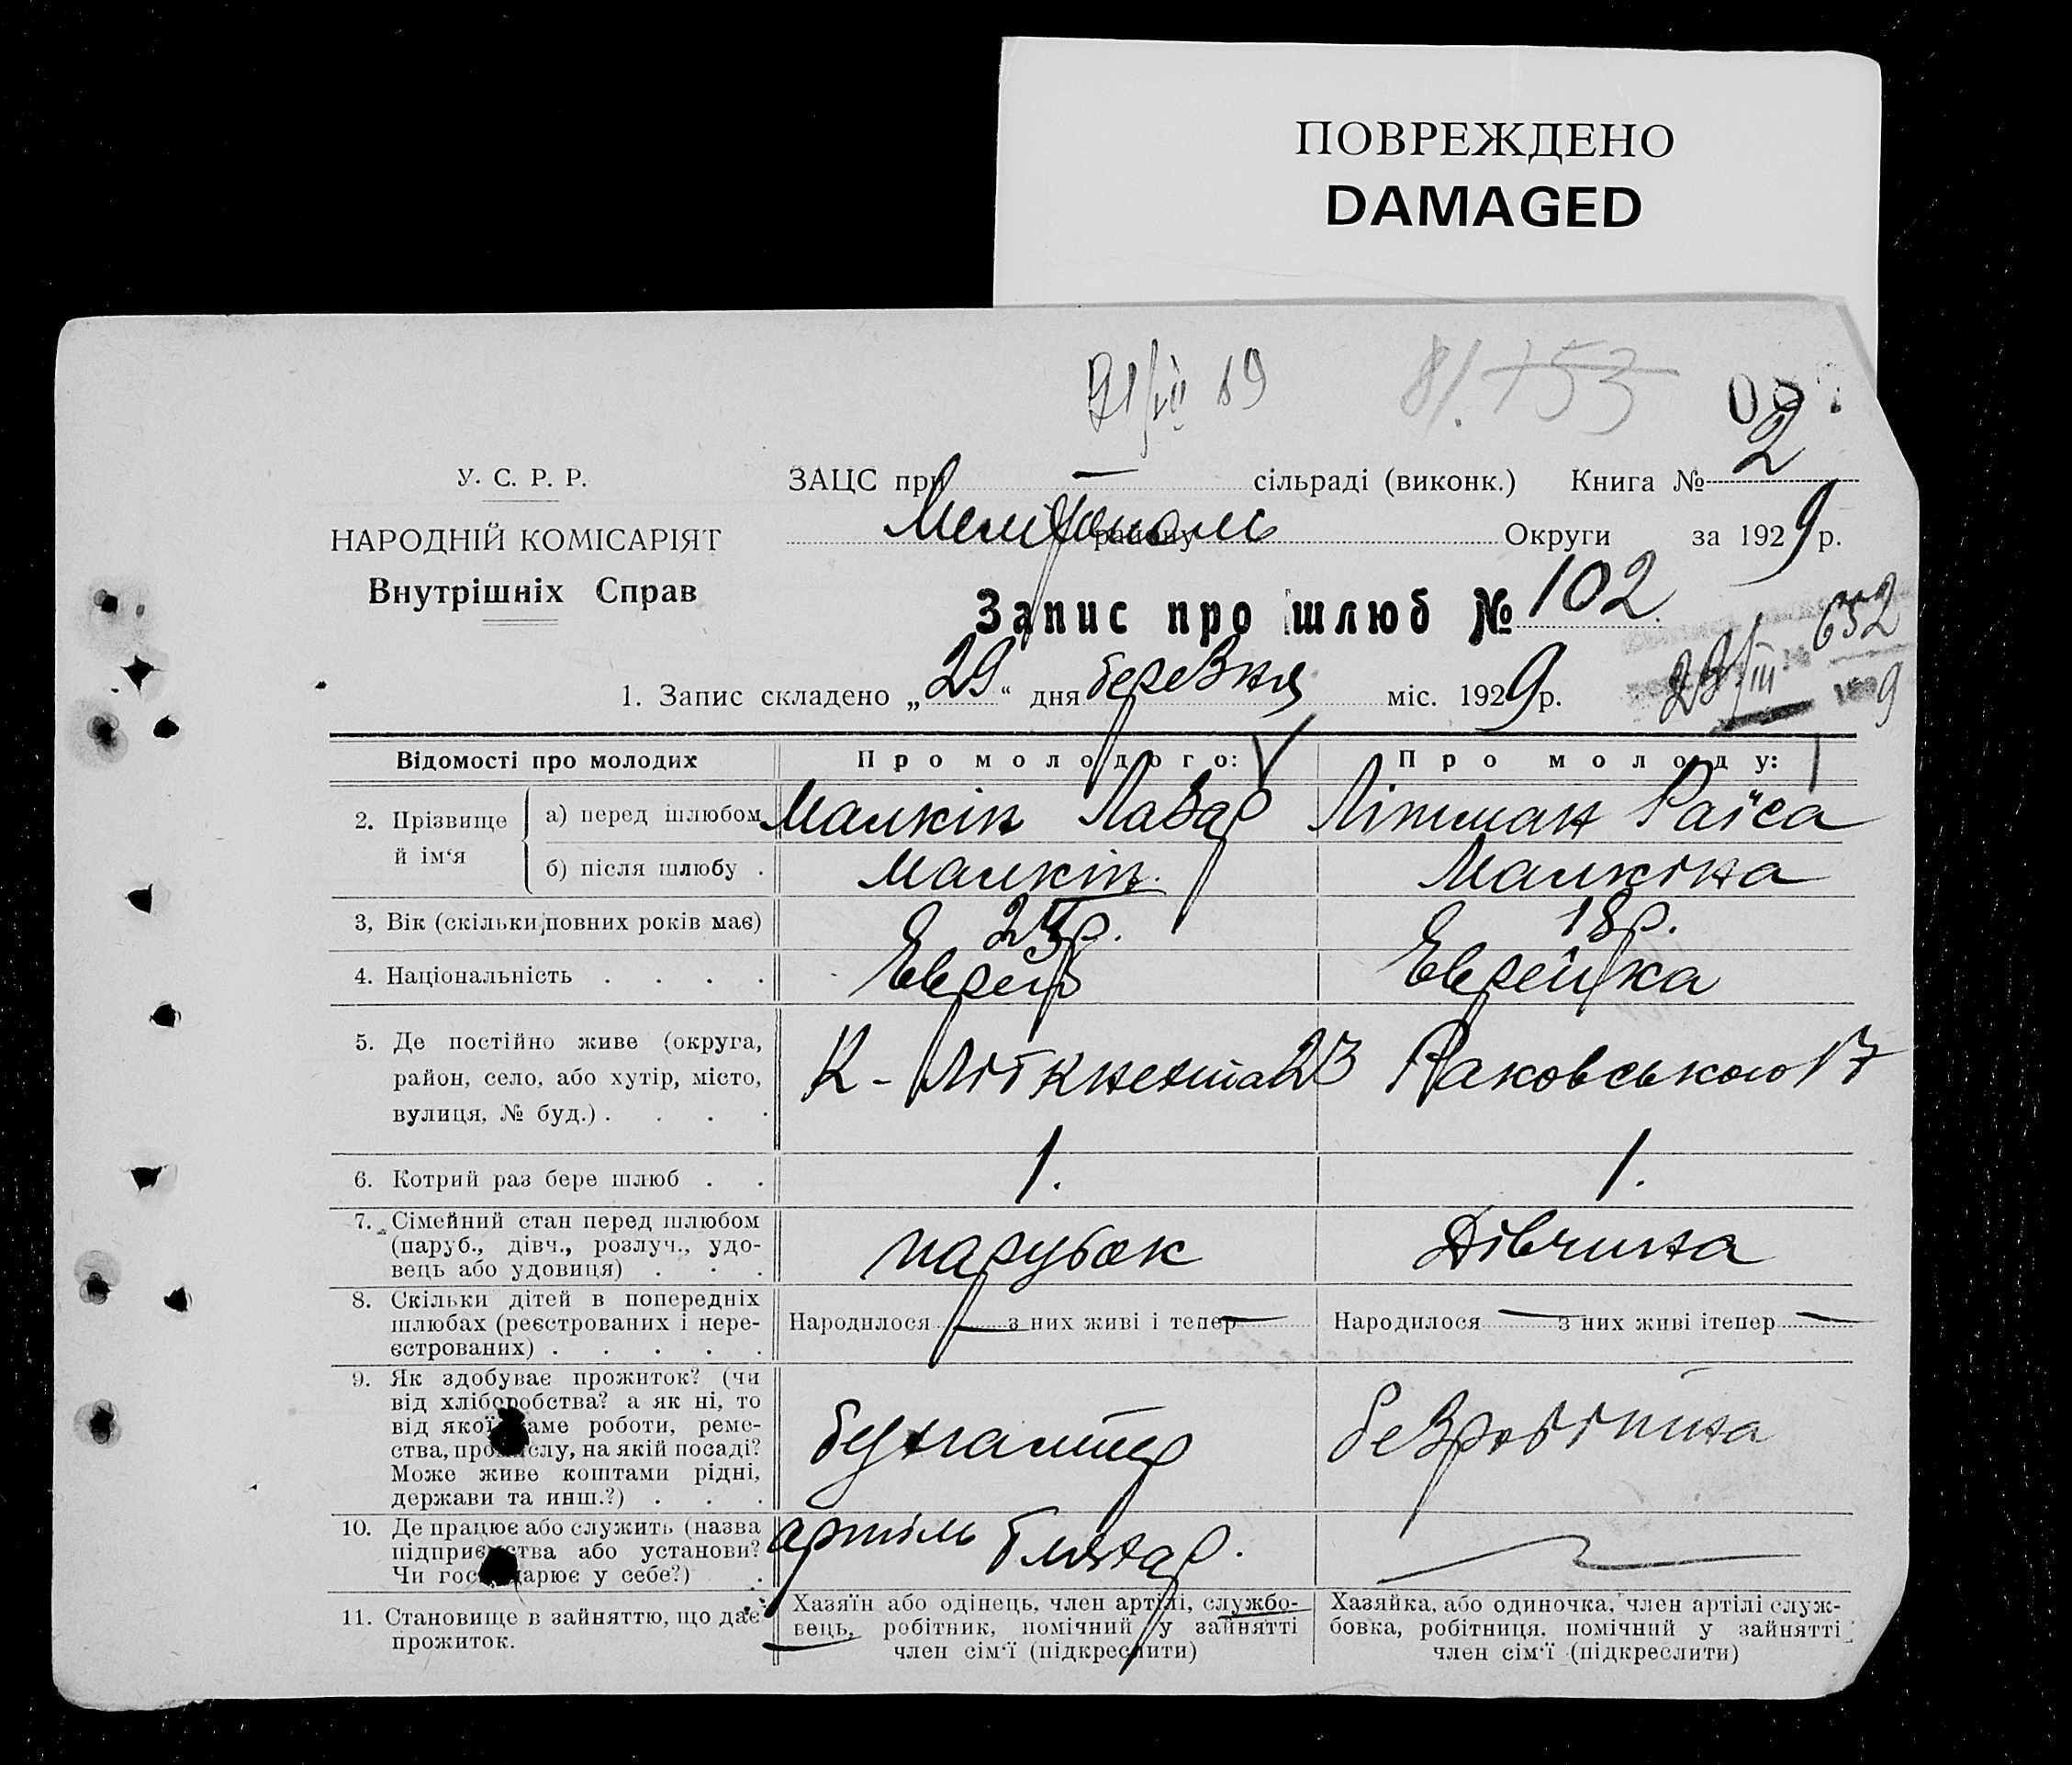 ПОВРЕЖДЕНО
DAMAGED
81. 753
2
У. С. Р. Р.
ЗАЦС при — сільраді (виконк.) Книга №
НАРОДНІЙ КОМІСАРІЯТ
Мелітополь району Округи за 1929 р.
Внутрішніх Справ
Запис про шлюб № 102
652
1. Запис складено „29“ дня березня міс. 1929 р.
Відомості про молодих
Про молодого:
Про молоду:
2. Прізвище й ім‘я
а) перед шлюбом
Малкін Лазар
Літман Раїса
б) після шлюбу .
Малкін
Малкіна
3, Вік (скільки повних років має)
18р.
4. Національність . . . .
Еврей
Еврейка
5. Де постійно живе (округа,
район, село, або хутір, місто,
вулиця, № буд.) . . . .
К-Лібкнехта 23
Раковського 17
6. Котрий раз бере шлюб . .
1.
1.
7. Сімейний стан перед шлюбом
(паруб., дівч., розлуч., удо-
вець або удовиця) . . .
парубок
Дівчина
8. Скільки дітей в попередніх
шлюбах (реєстрованих і нере-
єстрованих) . . . . .
Народилося — з них живі і тепер —
Народилося — з них живі ітепер —
9. Як здобуває прожиток? (чи
від хліборобства? а як ні, то
від якої саме роботи, реме-
ства, промислу, на якій посаді?
Може живе коштами рідні,
держави та инш.?) . . .
бухгалтер
безробітна
10. Де працює або служить (назва
підприємства або установи?
Чи господарює у себе?) .
артіль
11. Становище в зайняттю, що дає
прожиток.
Хазяїн або одінець, член артілі, службо-
вець, робітник, помічний у зайнятті
член сім‘ї (підкреслити)
Хазяйка, або одиночка, член артілі служ-
бовка, робітниця. помічний у зайнятті
член сім‘ї (підкреслити)